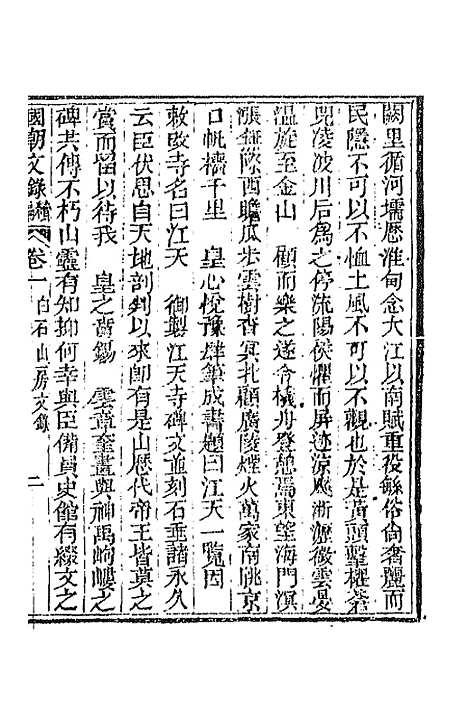 闕里循河壖歷淮甸念大江以南賦重役繇俗尚奢麗而
民隱不可以不恤土風不可以不觀也於是黃頭擊櫂蒼
兕凌波川后為之停流陽侯懼而屏迹涼颷漸瀝微雲曼
溫旋至金山　顧而樂之遂令檥舟登憩焉東望海門溟
漲無際西瞻瓜步雲樹杳冥北顧廣陵煙火萬家南眺京
口帆檣千里　皇心悅豫肆筆成書題曰江天一覽因
敕改寺名曰江天　御製江天寺碑文並刻石垂諸永久
云臣伏思自天地剖判以來卽有是山歷代帝王皆莫之
當而留以待我　皇之賚錫　雲章奎畫與神禹岣嶁之
碑共傳不朽山靈有知抑何幸與臣備員史館有綴文之
國朝文錄續編　卷一　白石山房文錄　二